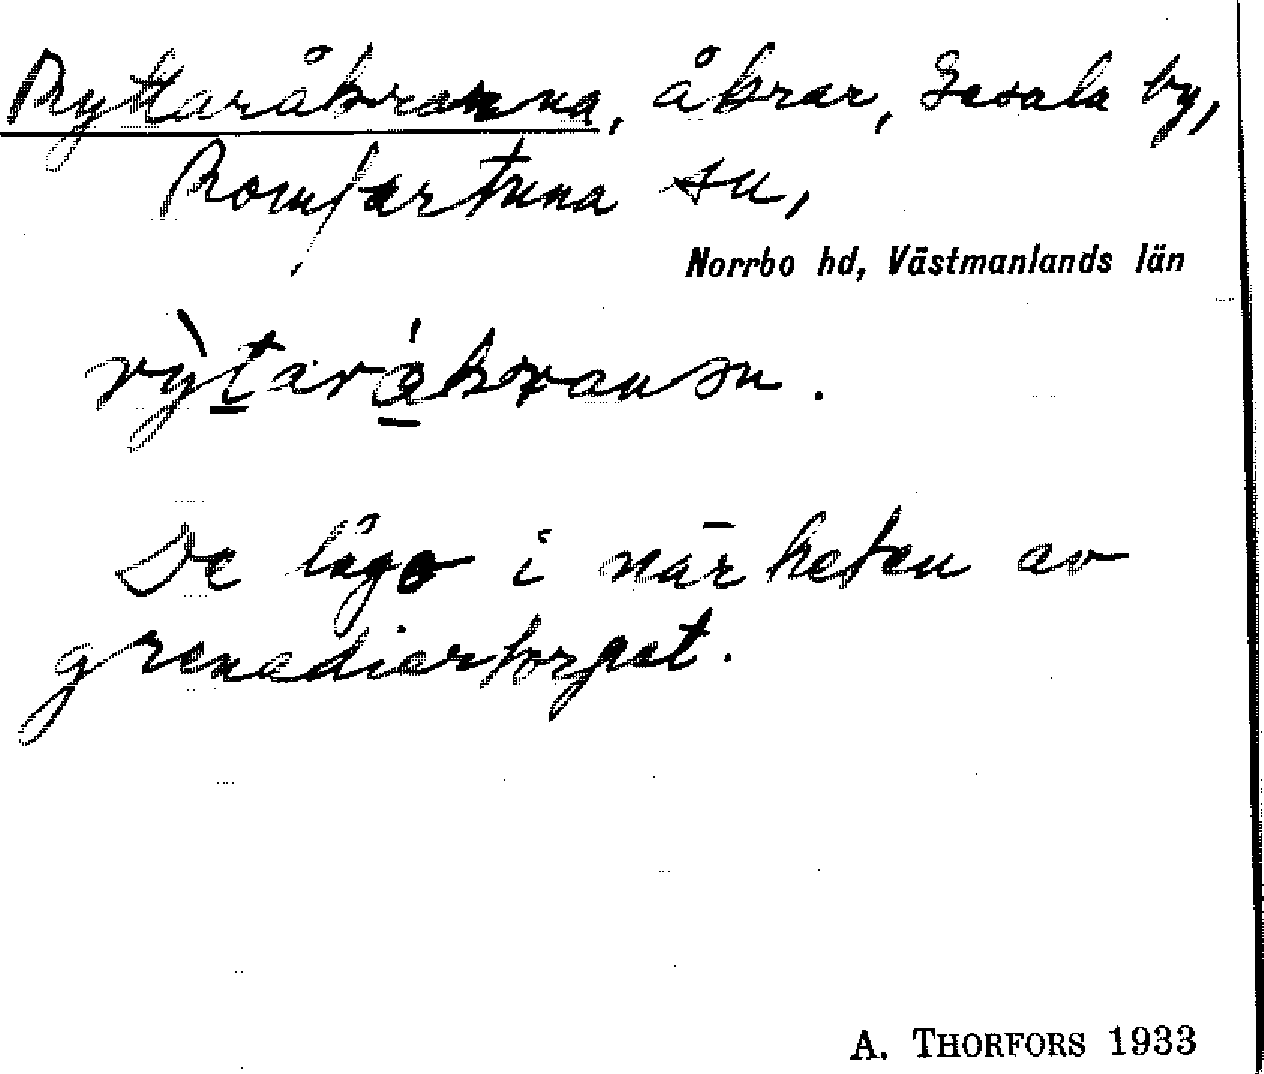 Ryttaråkranna, åkrar, Gesala by,
Romfartuna sn,
Norrbo hd, Västmanlands län
De lågo i närheten av
grenadiertorpet.
A. THORFORS 1933